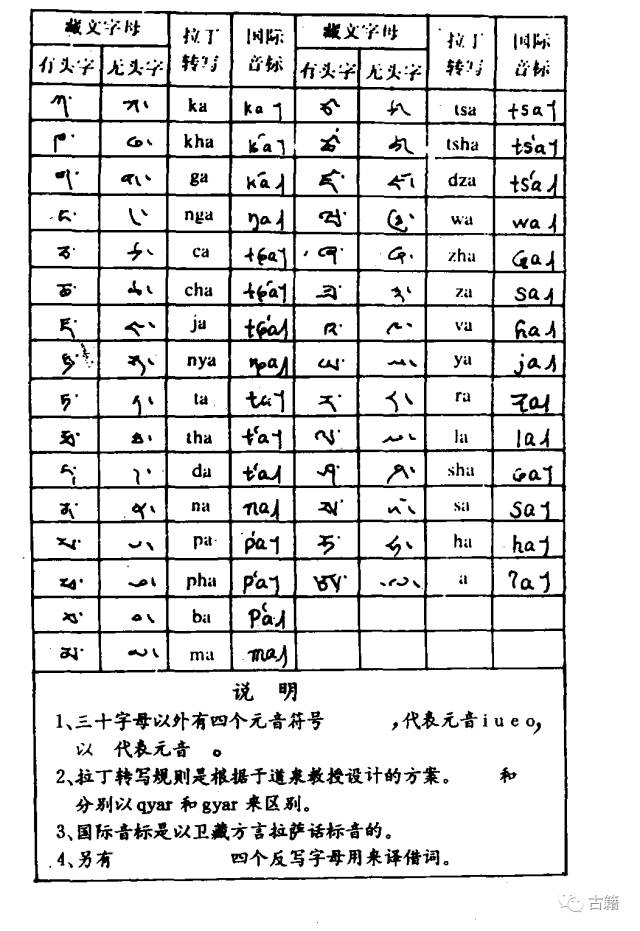 藏文字母 拉丁转写 国际音标 藏文字母 拉丁转写 国际音标
有头字 无头字 有头字 无头字
ཀ་ ཀ་ ka ka˥ ཙ་ ཙ་ tsa tsa˥
ཁ་ ཁ་ kha k'a˥ ཚ་ ཚ་ tsha ts'a˥
ག་ ག་ ga k'a˩˥ ཛ་ ཛ་ dza ts'a˩˥
ང་ ང་ nga ŋa˩˥ ཝ་ ཝ་ wa wa˩˥
ཅ་ ཅ་ ca tɕa˥ ཞ་ ཞ་ zha ɕa˩˥
ཆ་ ཆ་ cha tɕ'a˥ ཟ་ ཟ་ za sa˩˥
ཇ་ ཇ་ ja tɕ'a˩˥ འ་ འ་ va ɦa˩˥
ཉ་ ཉ་ nya ȵa˩˥ ཡ་ ཡ་ ya ja˩˥
ཏ་ ཏ་ ta ta˥ ར་ ར་ ra ra˩˥
ཐ་ ཐ་ tha t'a˥ ལ་ ལ་ la la˩˥
ད་ ད་ da t'a˩˥ ཤ་ ཤ་ sha ɕa˥
ན་ ན་ na na˩˥ ས་ ས་ sa sa˥
པ་ པ་ pa p'a˥ ཧ་ ཧ་ ha ha˥
ཕ་ ཕ་ pha p'a˥ ཨ་ ཨ་ a ʔa˥
བ་ བ་ ba p'a˩˥
མ་ མ་ ma ma˩˥
说 明
1、三十字母以外有四个元音符号 ,代表元音i u e o,
以 代表元音 。
2、拉丁转写规则是根据于道泉教授设计的方案。 和
分别以qyar和gyar来区别。
3、国际音标是以卫藏方言拉萨话标音的。
4、另有 四个反写字母用来译借词。
古籍